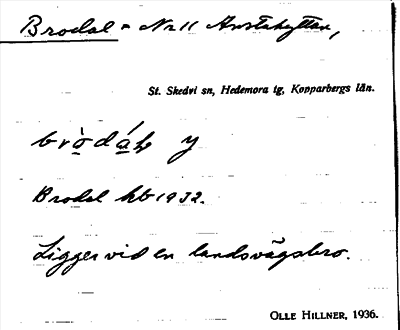 Brodal = Nr 11 Anstahyttan,
St. Skedvi sn, Hedemora tg, Kopparbergs län.
bròdáɫ y
Brodal hb 1932.
Ligger vid en landsvägsbro.
OLLE HILLNER, 1936.